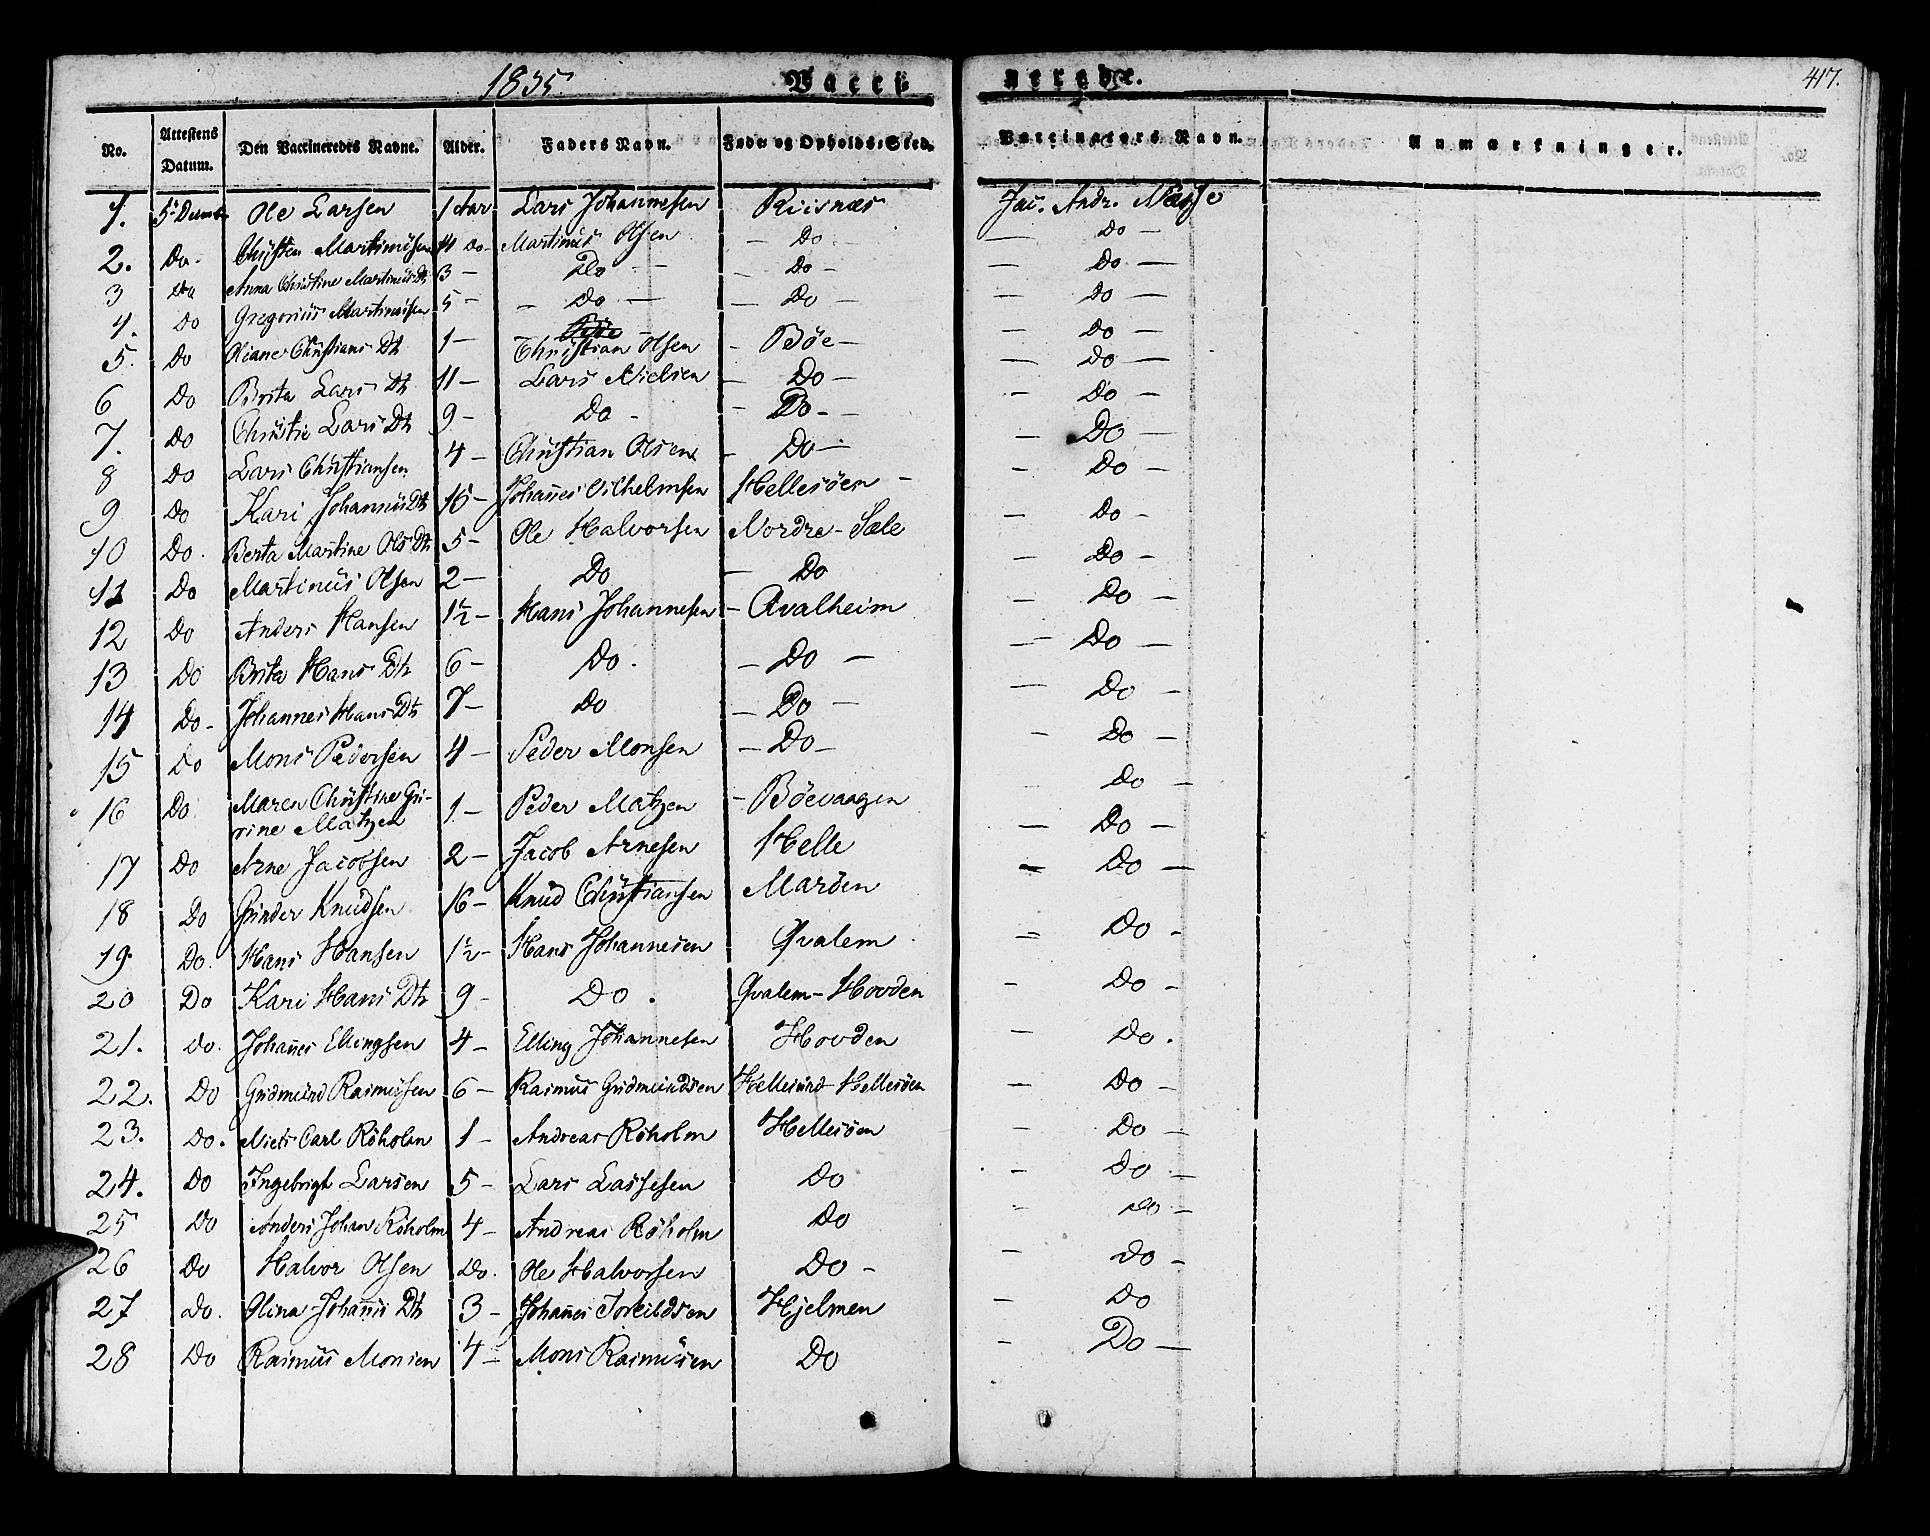 1835 Vacci- nerede. 417.
No. Attestens Datum. Den Vaccineredes Navne. Alder. Faders Navn. Føde- og Opholds-Sted. Vaccinators Navn. Anmærkninger.
1. 5t Decemb. Ole Larsen 1 Aar Lars Johannesen Riisnæs Jac. Andr.
2. Do. Christen Martinusen 14 Do- Martinus Olsen - Do - Do -
3 Do Anna Christine Martinus Dtr 3 - Do - - Do - - Do -
4. Do Gregorius Martinusen 5 - - Do - - Do - - Do -
5. Do Oliane Christians Dtr 1 - Christian Olsen - Bøe - - Do -
6 Do Brita Lars Dtr 11 - Lars Nielsen - Do - - Do -
7. Do Christie Lars Dtr 9 - Do - - Do - - Do -
8 Do Lars Christiansen 4 - Christian Olsen - Do - - Do -
9 Do Kari Johannis Dtr 15 - Johannes Vilhelmsen Hellesøen - - Do -
10 Do. Berta Martine Ols Dtr 5 - Ole Halvorsen Nordre-Sæle - Do -
11 Do Martinus Olsen 2 - Do - Do - Do -
12 Do Anders Hansen 1½ - Hans Johannesen - Qvalheim - Do -
13 Do Brita Hans Dtr 6 - Do. - Do - - Do -
14 Do - Johannes Hans Dtr 7 - Do - Do - - Do -
15 Do Mons Pedersen 4 - Peder Monsen - Do - - Do -
16 Do Maren Christine Gu-
rine Matzen 1 - Peder Matzen - Bøevaagen - Do -
17 Do Arne Jacobsen 2 - Jacob Arnesen Helle - Do -
18 Do Knudsen 16 - Knud Christiansen Marøen - Do -
19. Do. Hans Hansen 1½ - Hans Johannesen Qvalem - Do -
20 Do Kari Hans Dtr 9 - Do. Qvalem-Hovden - Do -
21. Do. Johanes Ellingsen 4 - Elling Johannesen Hovden - Do.
22. Do Gudmund Rasmusen 6 - Rasmus Gudmundsen Hellesund-Hellesøen - Do -
23. Do. Niels Carl Røholm 1 - Andreas Røholm Hellesøen - Do -
24. Do Ingebrigt Larsen 5 - Lars Lassesen Do - Do -
25 Do Anders Johan Røholm 4 - Andreas Røholm Do - Do -
26 Do Halvor Olsen Do. Ole Halvorsen Do - - Do -
27 Do. Olina Johans Dtr 3 - Johanes Torkildsen Hjelmen - Do
28 Do Rasmus Monsen 4 - Mons Rasmusen Do - Do -